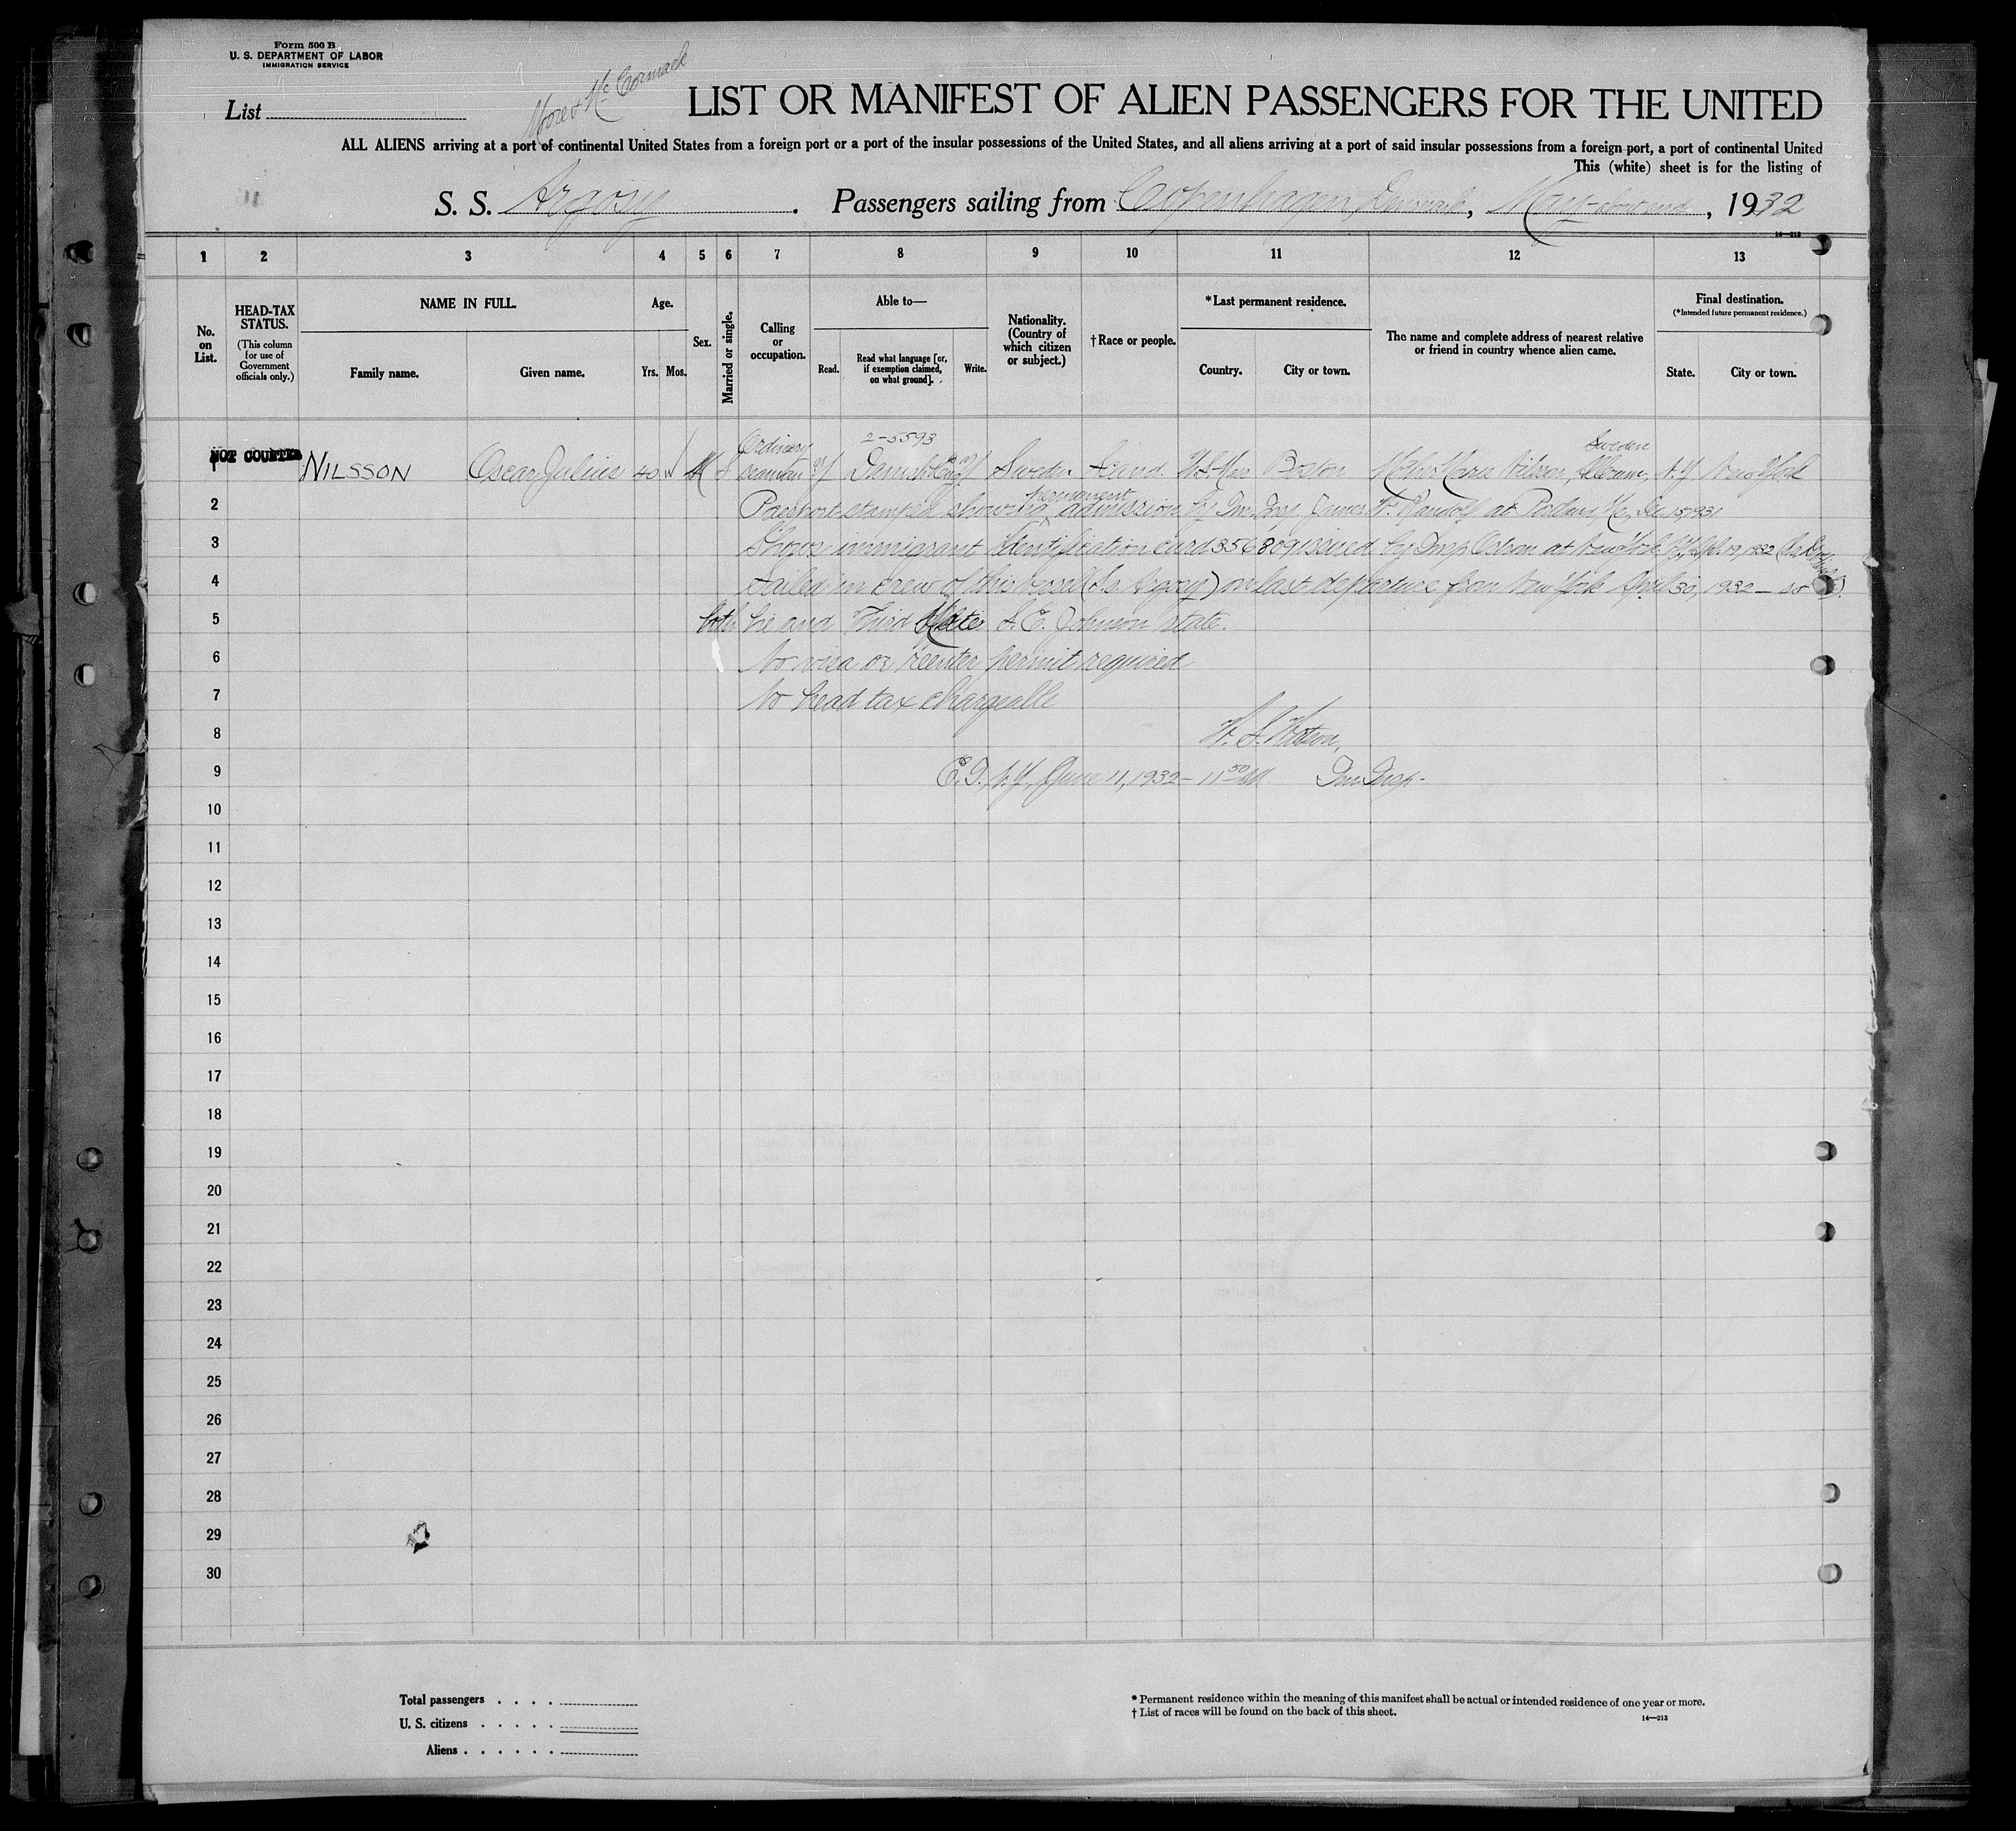 Form 500 B
U. S. DEPARTMENT OF LABOR
IMMIGRATION SERVICE
Moore & McCormack
List
LIST OR MANIFEST OF ALIEN PASSENGERS FOR THE UNITED
ALL ALIENS arriving at a port of continental United States from a foreign port or a port of the insular possessions of the United States, and all aliens arriving at a port of said insular possessions from a foreign port, a port of continental United
This (white) sheet is for the listing of
S. S. Argosy. Passengers sailing from Copenhagen, Denmark, May 1932
14—213
1 2 3 4 5 6 7 8 9 10 11 12 13
No. on List.
HEAD-TAX STATUS.
(This column for use of Government officials only.)
NAME IN FULL.
Family name. Given name.
Age.
Yrs. Mos.
Sex.
Married or single.
Calling or occupation.
Able to—
Read. Read what language [or, if exemption claimed, on what ground]. Write.
Nationality. (Country of which citizen or subject.)
†Race or people.
*Last permanent residence.
Country. City or town.
The name and complete address of nearest relative or friend in country whence alien came.
Final destination.
(*Intended future permanent residence.)
State. City or town.
Ordinary 2-5593 Sweden
1 NOT COUNTED NILSSON Oscar Julius 40 M S seaman Y Danish Eng Y Sweden Scand. Boston Mother Nilsson, N.Y. New York
permanent
2 Passport stamped showing admission by Im. Insp. James W. at Me., Dec 15, 1931
3 Shows immigrant identification card 356809 issued by Insp at New York, N.Y. 19, 1932
4 Sailed in crew of this vessel (S.S. Argosy) on last departure from New York April 30, 1932 — so
5 both he and Third Mate S. E. Johnson state.
6 No visa or reenter permit required
7 No head tax chargeable
8 W. S. Watson,
9 E.I. N.Y. June 11, 1932 — 11 50 AM Im. Insp.
10
11
12
13
14
15
16
17
18
19
20
21
22
23
24
25
26
27
28
29
30
Total passengers . . . .
U. S. citizens . . . . .
Aliens . . . . . .
* Permanent residence within the meaning of this manifest shall be actual or intended residence of one year or more.
† List of races will be found on the back of this sheet.
14—213